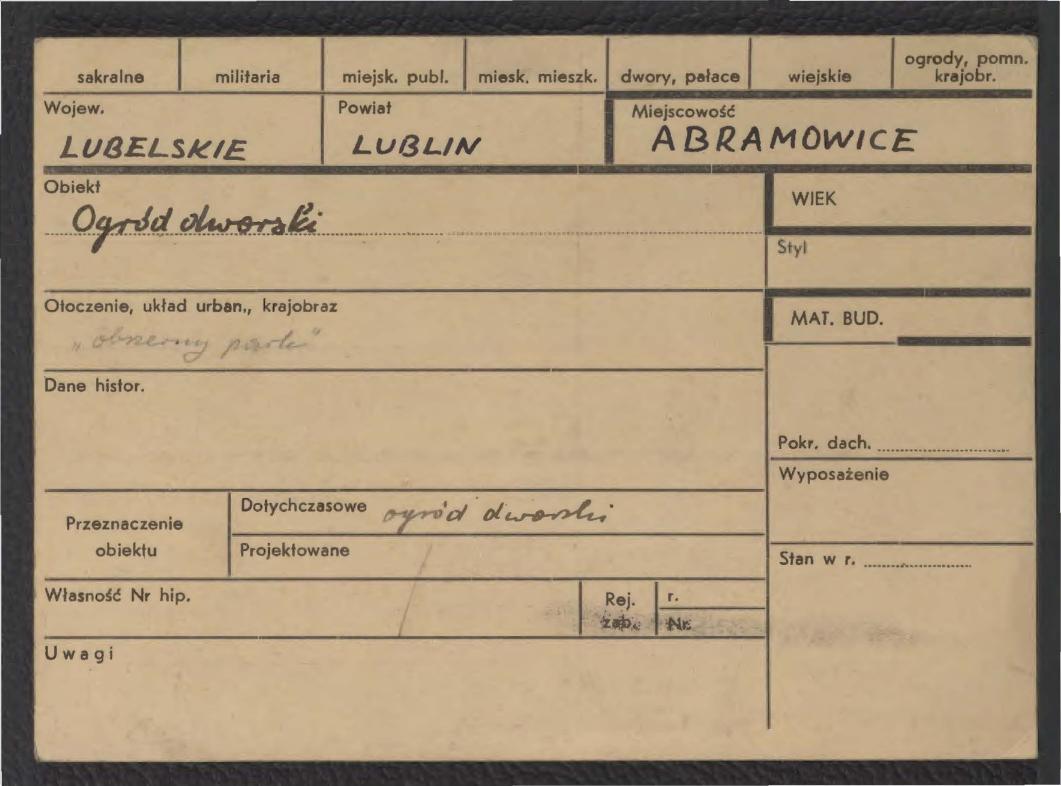 sakralne militaria miejsk. publ. miesk. mieszk. dwory, pałace wiejskie ogrody, pomn. krajobr.
Wojew. Powiat Miejscowość
LUBELSKIE LUBLIN ABRAMOWICE
Obiekt
Ogród dworski
WIEK
Styl
Otoczenie, układ urban., krajobraz
„obszerny park"
MAT. BUD.
Dane histor.
Pokr. dach.
Wyposażenie
Przeznaczenie obiektu
Dotychczasowe ogród dworski
Projektowane
Stan w r.
Własność Nr hip.
Rej. zab.
r.
Nr.
Uwagi